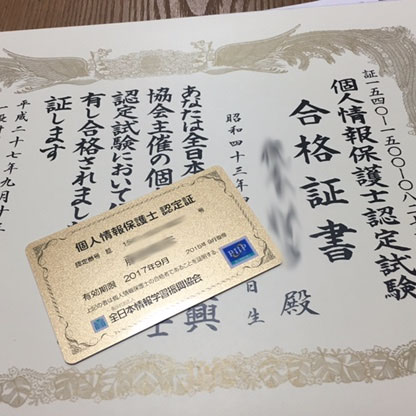 証一五四〇一五〇〇八
個人情報保護士認定試験
合格証書
殿
昭和四十三年
日生
あなたは全日本
協会主催の個
認定試験において
有し合格されまし
証します
平成二十七年九月十
個人情報保護士 認定証
認定番号 証 15 号
2015年9月取得
有効期限 2017年9月
上記の者は個人情報保護士の合格者であることを証明する。
全日本情報学習振興協会
興
士